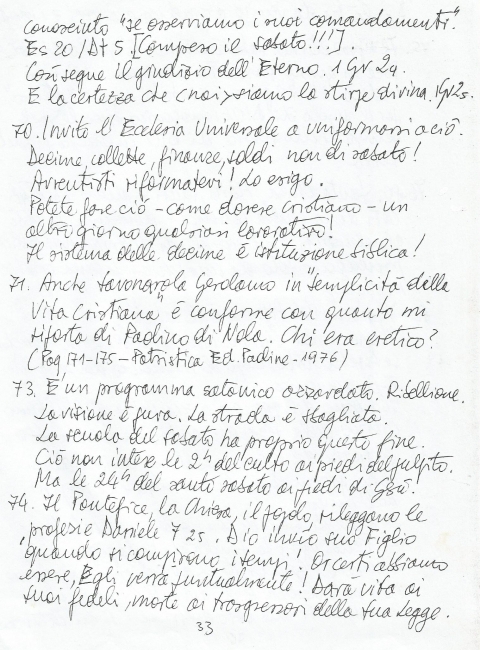 conosciuto "se osserviamo i suoi comandamenti".
Es 20/Dt 5 [Compreso il sabato!!!].
Così segue il giudizio dell'Eterno. 1 Gv 2 4.
E la certezza che (noi) siamo la stirpe divina. 1 Gv 2 5.
70. Invito l'Ecclesia Universale a uniformarsi a ciò.
Decime, collette, finanze, soldi non di sabato!
Avventisti riformatevi! Lo esigo.
Potete fare ciò - come dovere cristiano - un
altro giorno qualsiasi lavorativo!
Il sistema delle decime è istituzione biblica!
71. Anche Savonarola Gerolamo in "Semplicità della
Vita Cristiana" è conforme con quanto mi
riporta di Paolino di Nola. Chi era eretico?
(Pag 171-175 - Patristica Ed. Paoline - 1976)
73. E' un programma satanico azzardato. Ribellione.
La visione è pura. La strada è sbagliata.
La scuola del sabato ha proprio questo fine.
Ciò non intese le 2h del culto ai piedi del pulpito.
Ma le 24h del santo sabato ai piedi di Gesù.
74. Il Pontefice, la Chiesa, il popolo, rileggano le
profezie Daniele 7 25. Dio inviò suo Figlio
quando si compirono i tempi! Or certi abbiamo
essere, Egli verrà puntualmente! Darà vita ai
suoi fedeli, morte ai trasgressori della sua Legge.
33